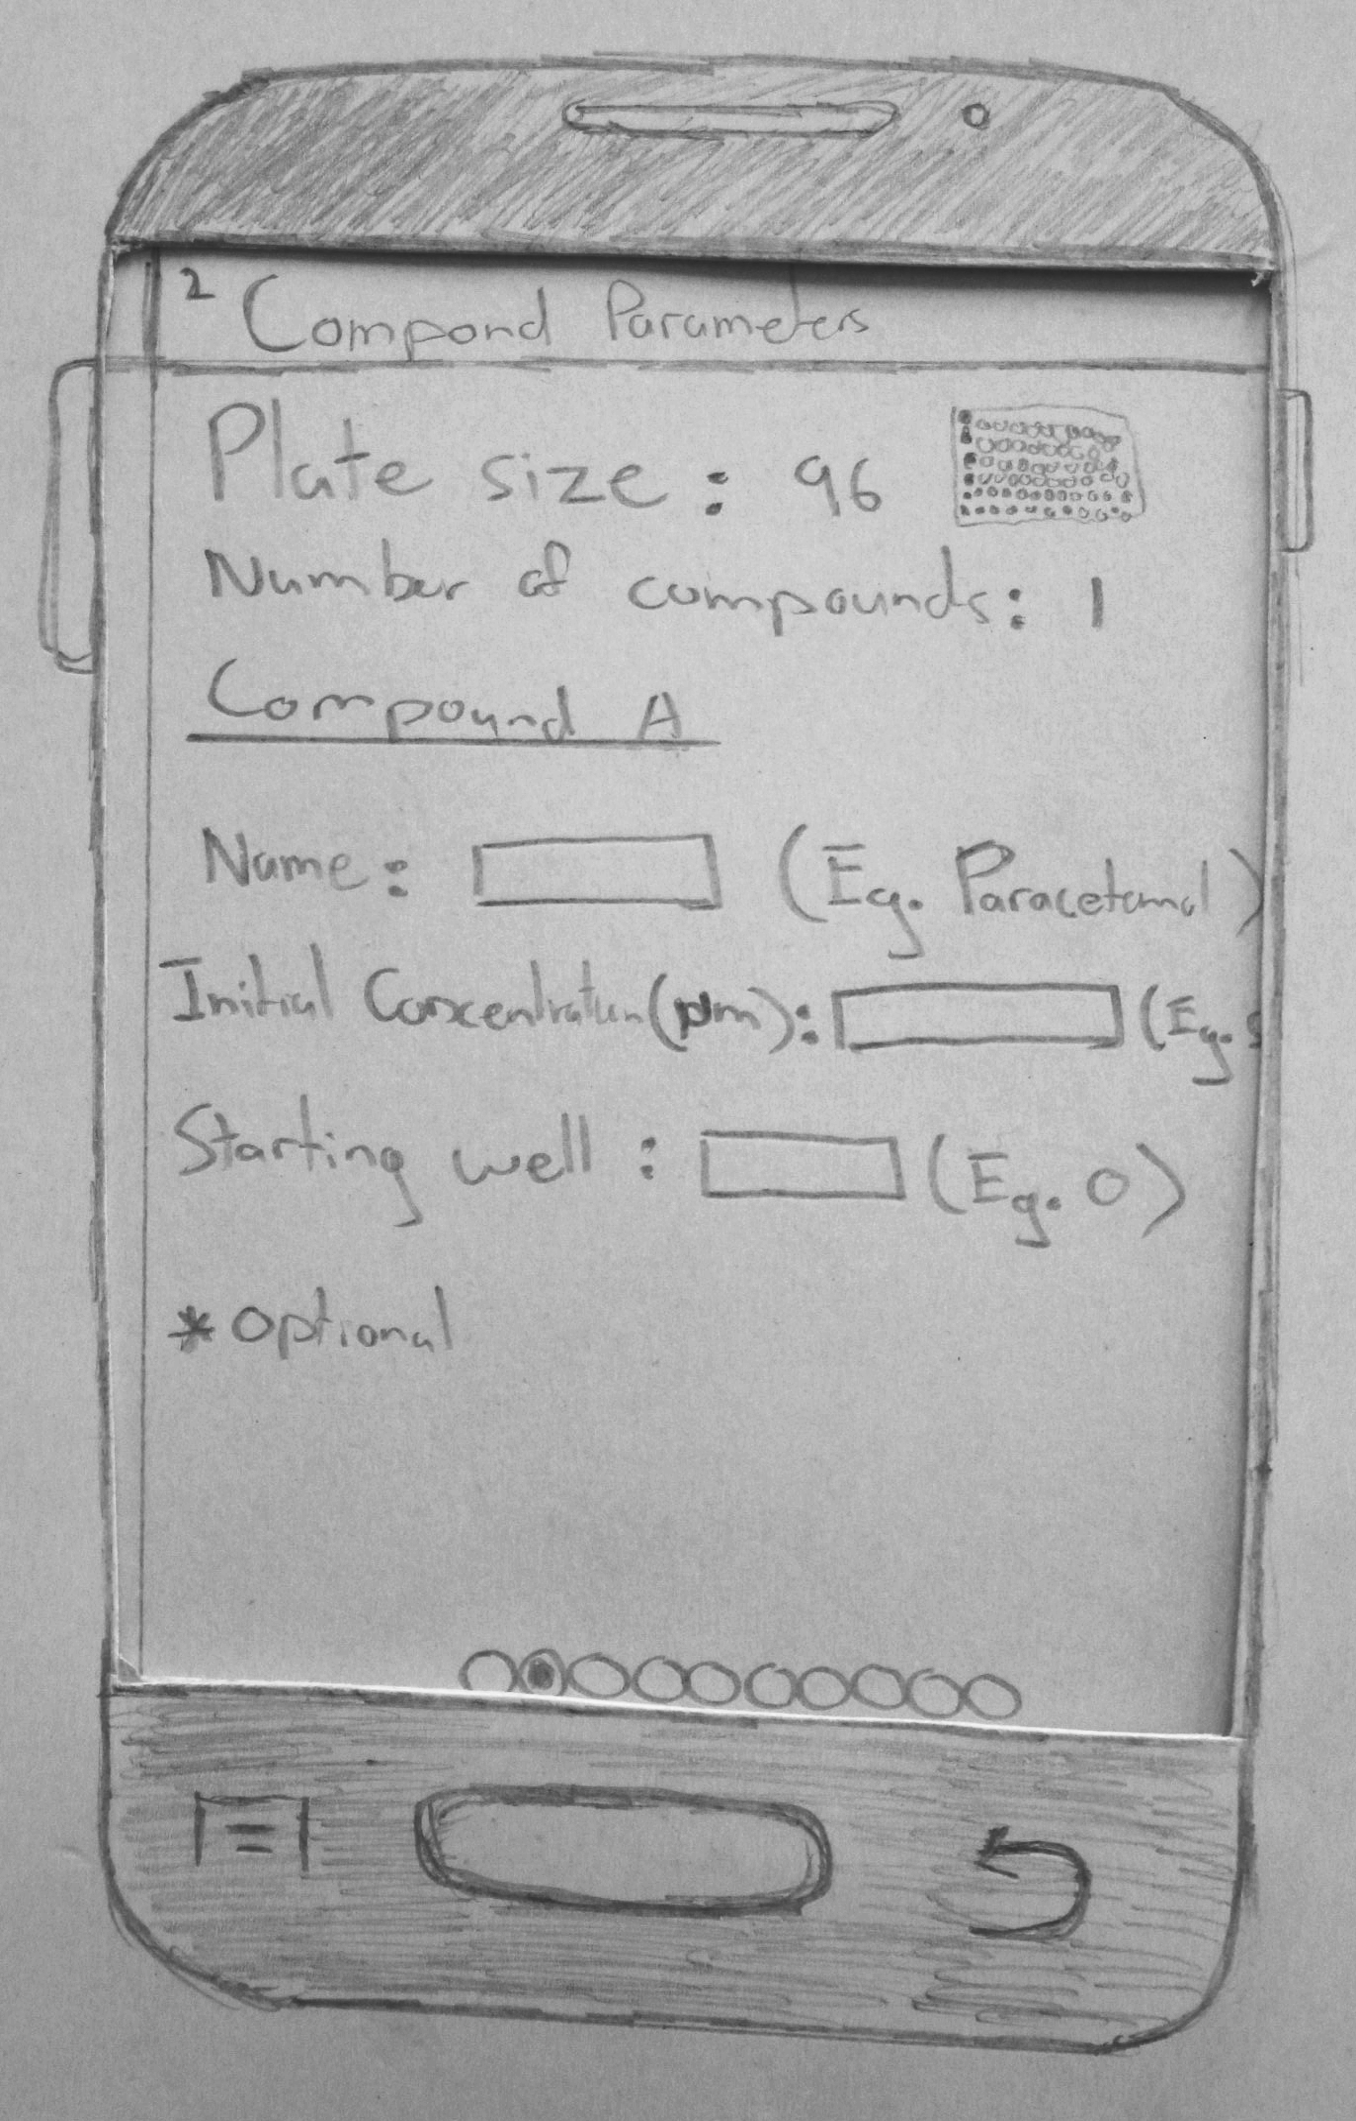 2 Compond Parameters
Plate size: 96
Number of compounds: 1
Compound A
Name: (Eg. Paracetamol)
Initial Concentration (µm): (Eg. 5
Starting well: (Eg. 0)
* Optional